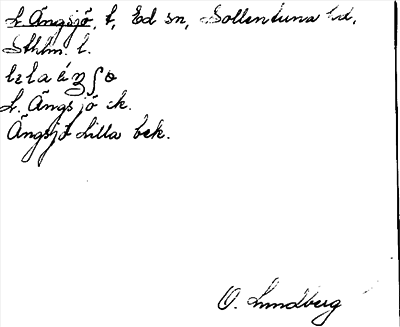 L. Ängsjö, t, Ed sn, Sollentuna hd,
Sthlm. l.
L. Ängsjö ek.
Ängsjö Lilla bek.
O. Lundberg